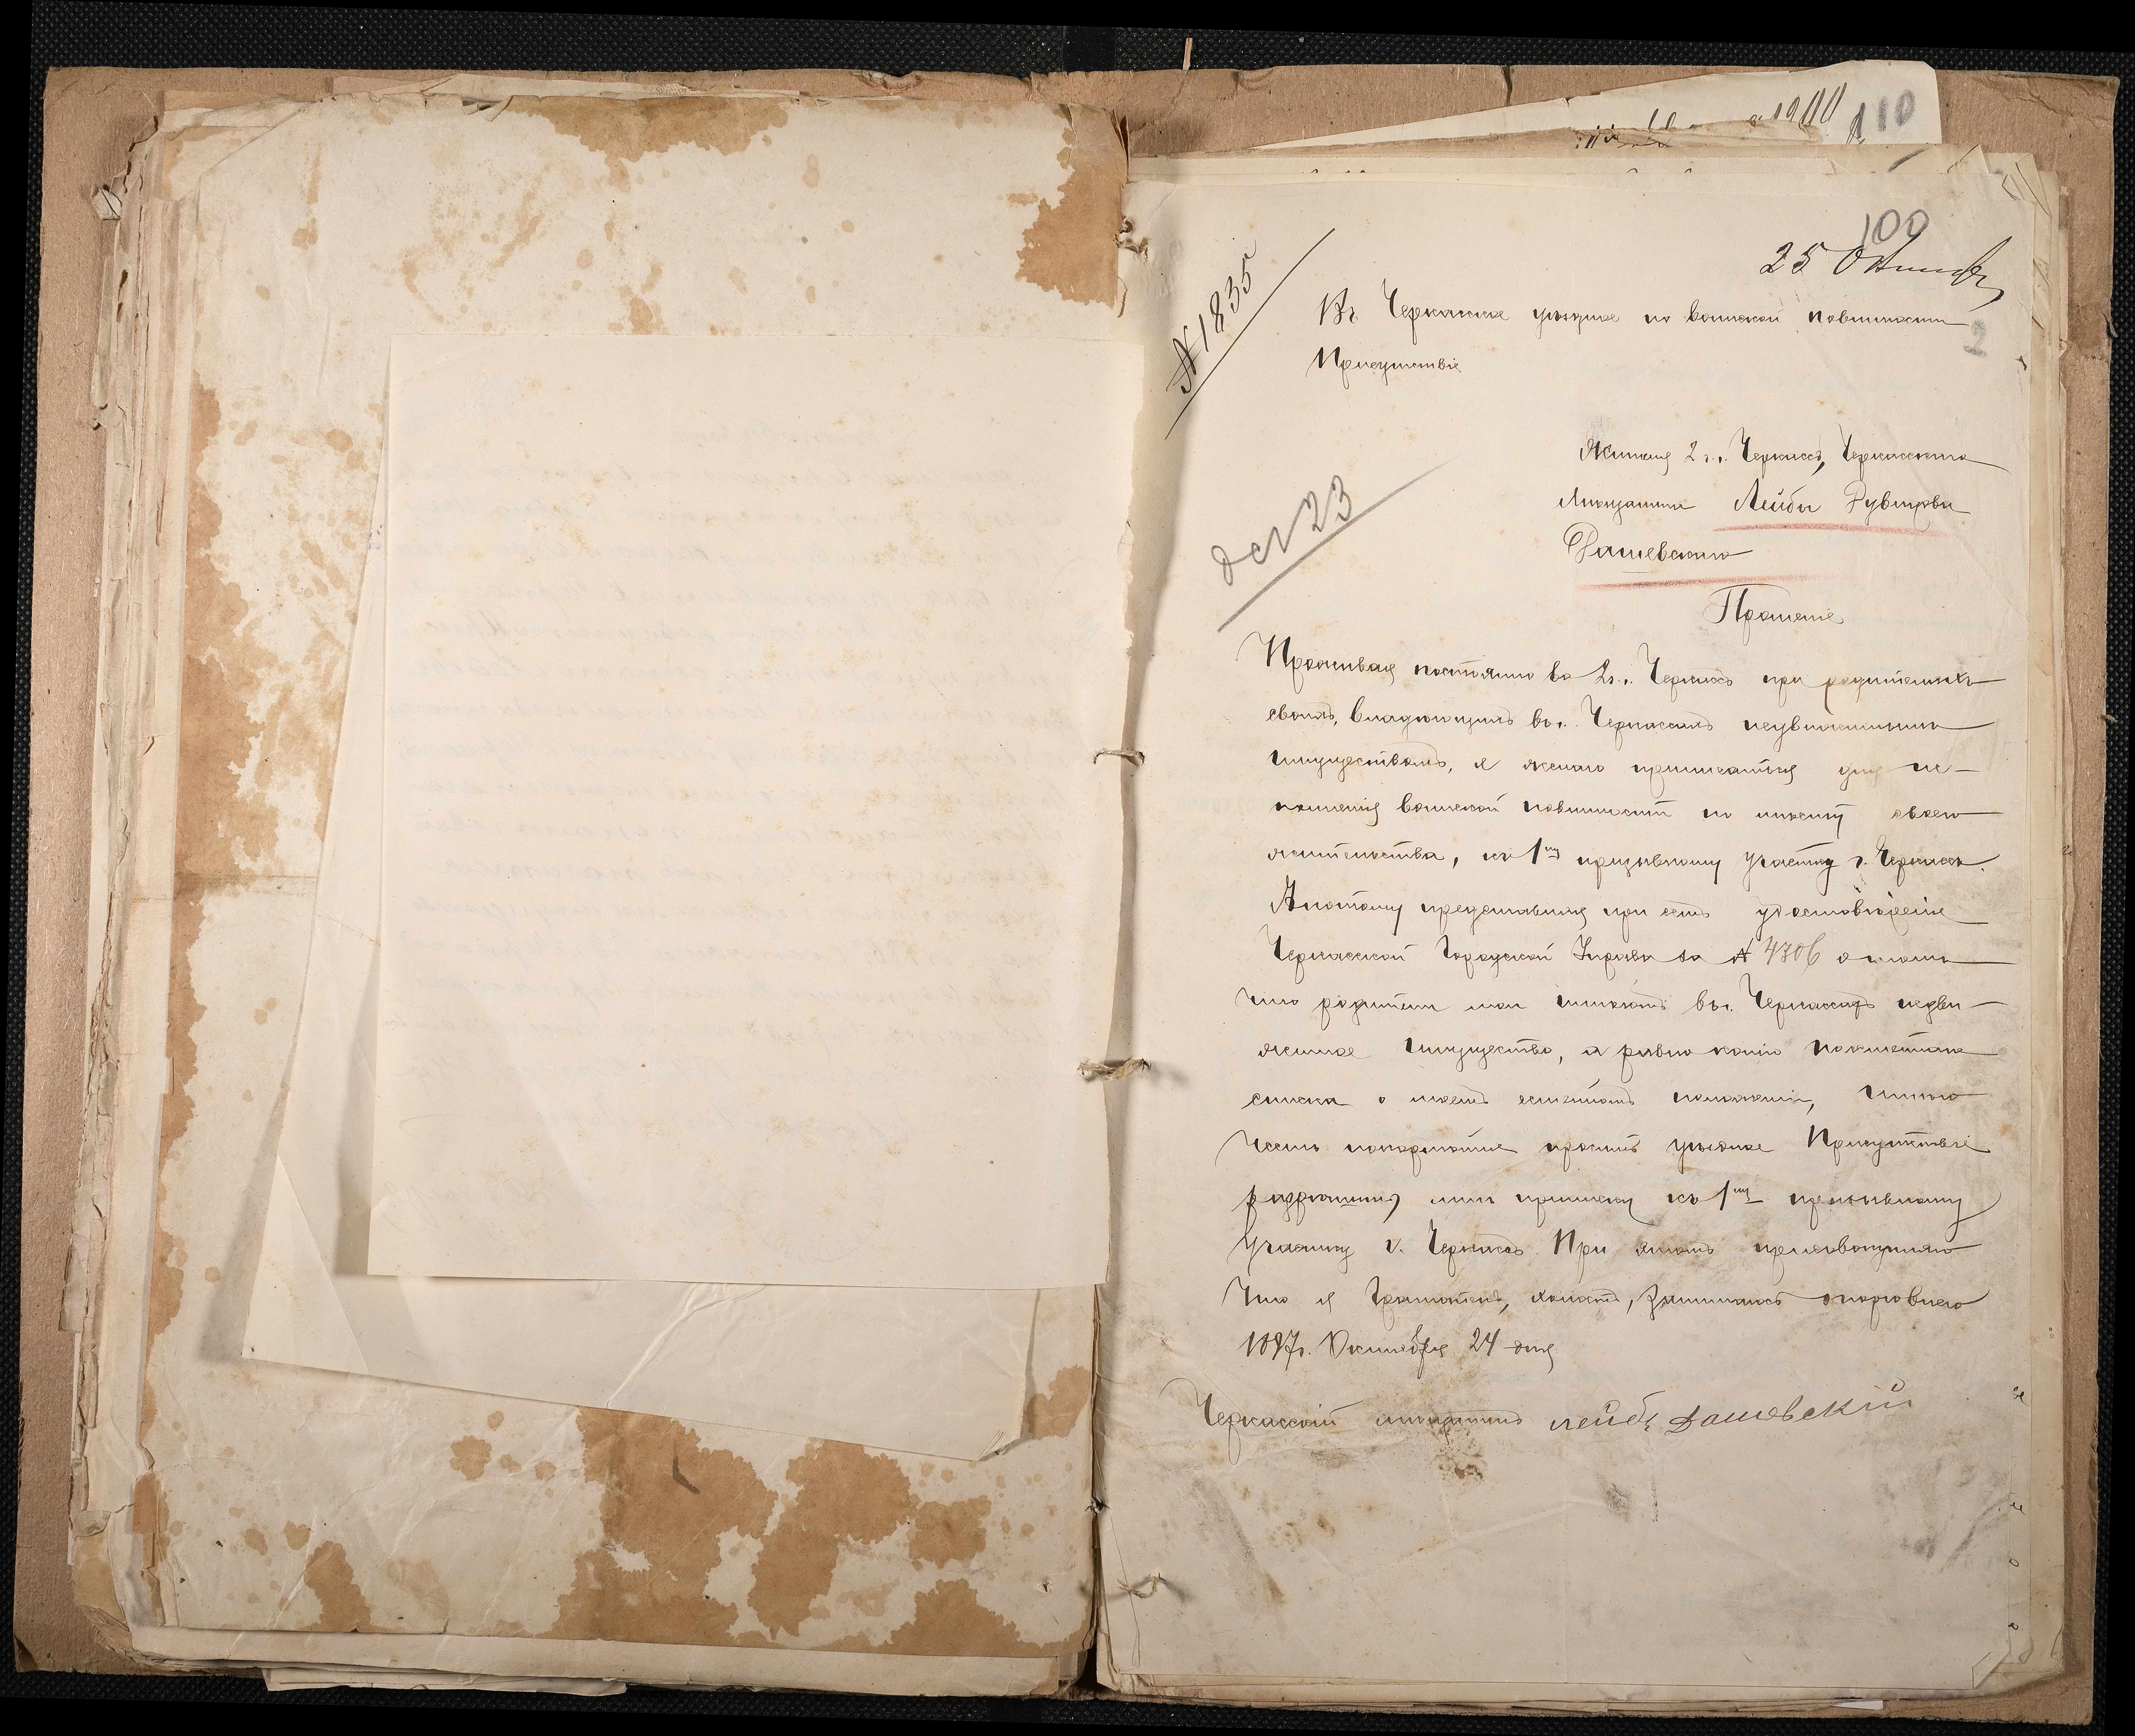 110
100
25 Октября
2
№ 1835
Въ Черкасское уѣздное по воинской повинности
Присутствіе
Жителя г. Черкассъ, Черкасскаго
Мѣщанина Лейбы Рувинова
Дашевскаго
Прошеніе
Проживая постоянно въ г. Черкассъ при родителяхъ
своихъ, владѣющихъ въ г. Черкассахъ недвижимымъ
имуществомъ, я желаю приписаться для ис-
полненія воинской повинности по мѣсту своего
жительства, къ 1му призывному участку г. Черкассъ.
А потому представляя при семъ удостовѣреніе
Черкасской Городской Управы за № 4306 о томъ
что родители мои имѣютъ въ г. Черкассахъ недви-
жимое имущество, а равно копію посемейнаго
списка о моемъ семейномъ положеніи, имѣю
честь покорнѣйше просить уѣздное Присутствіе
разрѣшить мнѣ приписку къ 1му призывному
участку г. Черкассъ При этомъ присовокупляю
что я Грамотенъ, холостъ, занимаюсь торговлею
1897г. Октября 24 дня
Черкасскій мѣщанинъ лейба Дашевскій